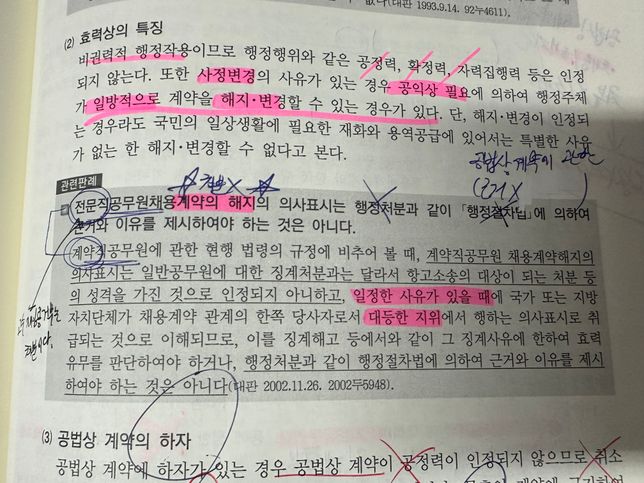 없다(대판 1993.9.14. 92누4611).
(2) 효력상의 특징
비권력적 행정작용이므로 행정행위와 같은 공정력, 확정력, 자력집행력 등은 인정
되지 않는다. 또한 사정변경의 사유가 있는 경우 공익상 필요에 의하여 행정주체
가 일방적으로 계약을 해지·변경할 수 있는 경우가 있다. 단, 해지·변경이 인정되
는 경우라도 국민의 일상생활에 필요한 재화와 용역공급에 있어서는 특별한 사유
가 없는 한 해지·변경할 수 없다고 본다.
공법상 계약이
관련판례
처분X
전문직공무원채용계약의 해지의 의사표시는 행정처분과 같이 「행정절차법」에 의하여
근거와 이유를 제시하여야 하는 것은 아니다.
계약직공무원에 관한 현행 법령의 규정에 비추어 볼 때, 계약직공무원 채용계약해지의
의사표시는 일반공무원에 대한 징계처분과는 달라서 항고소송의 대상이 되는 처분 등
의 성격을 가진 것으로 인정되지 아니하고, 일정한 사유가 있을 때에 국가 또는 지방
자치단체가 채용계약 관계의 한쪽 당사자로서 대등한 지위에서 행하는 의사표시로 취
급되는 것으로 이해되므로, 이를 징계해고 등에서와 같이 그 징계사유에 한하여 효력
유무를 판단하여야 하거나, 행정처분과 같이 행정절차법에 의하여 근거와 이유를 제시
하여야 하는 것은 아니다(대판 2002.11.26. 2002두5948).
(3) 공법상 계약의 하자
공법상 계약에 하자가 있는 경우 공법상 계약이 공정력이 인정되지 않으므로 취소